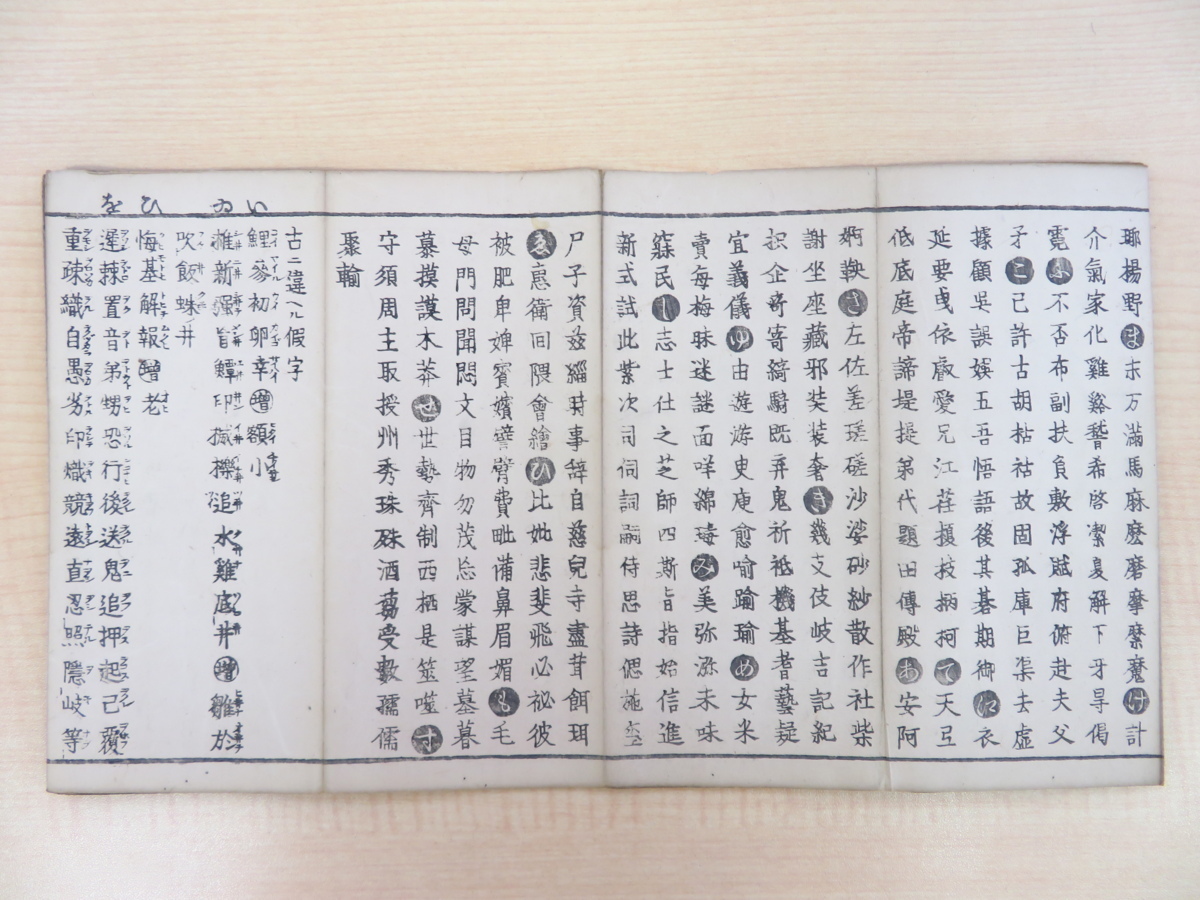 耶揚野ま末万滿馬麻麼磨摩縻魔け計
介氣家化雞谿嵆希啓潔夏解下牙㝵偈
霓ふ不否布副扶負敷浮賦府俯赴夫父
矛こ己許古胡枯祜故固孤庫巨渠去虚
據顧吳誤娯五吾悟語後其碁期御江衣
延要曳依叡愛兄江荏榎枝柄柯て天弖
低底庭帝諦堤提弟代題田傳殿あ安阿
婀鞅さ左佐差瑳磋沙娑砂紗散作社柴
謝坐座藏邪奘装奢き幾支伎岐吉記紀
枳企奇寄綺騎既弃鬼祈祗機基耆藝疑
宜義儀ゆ由遊游史庾愈喻踰瑜め女米
賣每梅昧迷謎面咩綿瑇み美弥渳未味
寐民し志士仕之芝師四斯旨指始信進
新式試此紫次司伺詞嗣侍思詩偲施
尸子資茲緇時事辞自慈兒寺盡茸餌珥
ゑ惠衛回隈會繪ひ比妣悲斐飛必祕彼
被肥卑婢賓嬪譬臂費毗備鼻眉媚も毛
母門問聞悶文目物勿茂忘蒙謀望墓暮
慕摸謨木莽せ世勢齊制西栖是筮噬す
守須周主取授州秀珠殊酒受數孺儒
聚輸
い ゐ ひ を
古ニ違ヘル假字
鯉蓼初卵幸增額小
推新彊旨鱏印搣櫟䭔水雞底井增雛於
吹飯蛛井
悔基解報增老
遲棘置音弟甥恐行後送鬼追押起己覆
重疎織自愚劣印熾競遠直忍照隱岐等